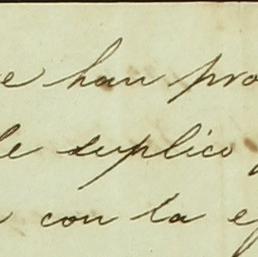 e han pro
le suplico
con la ef